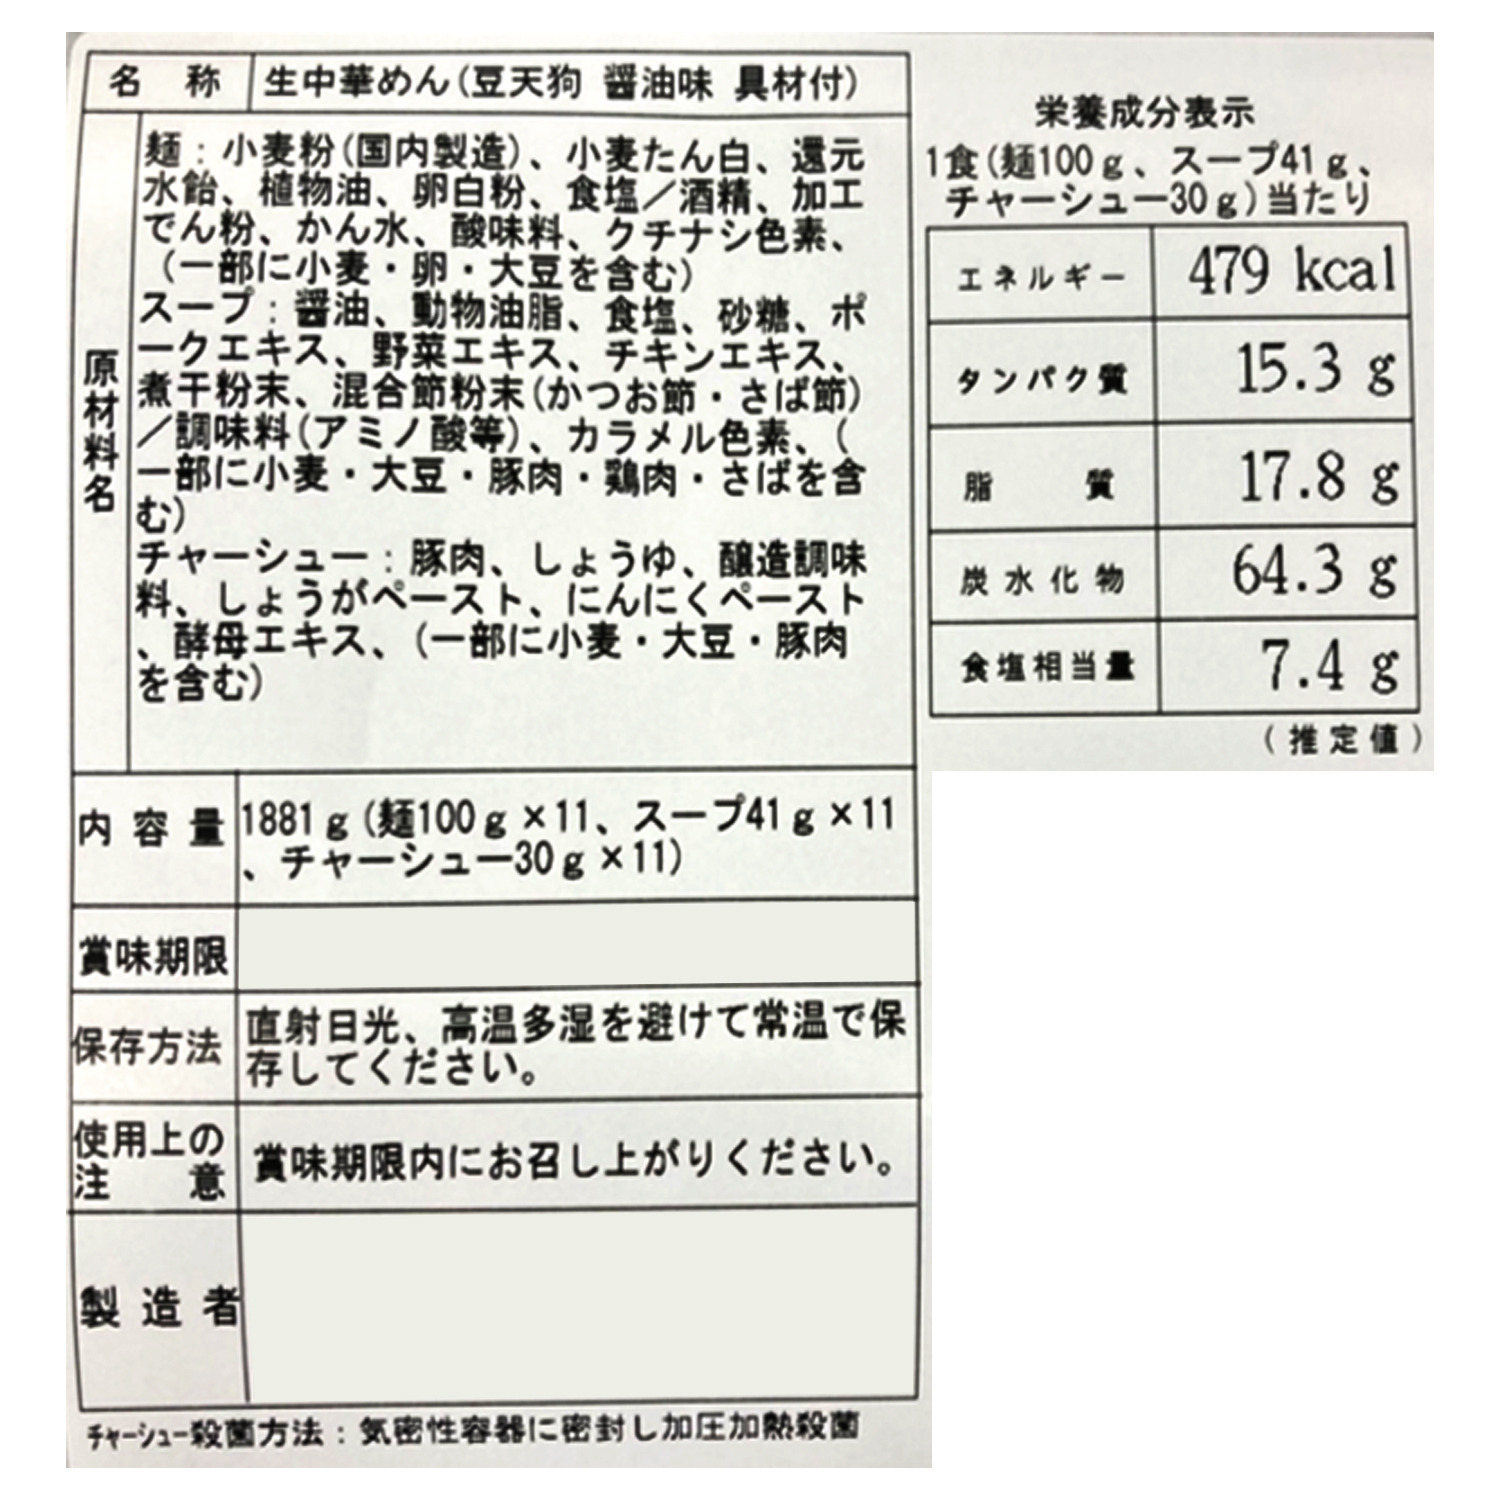 名称 生中華めん(豆天狗 醤油味 具材付)
原材料名
麺:小麦粉(国内製造)、小麦たん白、還元
水飴、植物油、卵白粉、食塩/酒精、加工
でん粉、かん水、酸味料、クチナシ色素、
(一部に小麦・卵・大豆を含む)
スープ:醤油、動物油脂、食塩、砂糖、ポ
ークエキス、野菜エキス、チキンエキス、
煮干粉末、混合節粉末(かつお節・さば節)
/調味料(アミノ酸等)、カラメル色素、(
一部に小麦・大豆・豚肉・鶏肉・さばを含
む)
チャーシュー:豚肉、しょうゆ、醸造調味
料、しょうがペースト、にんにくペースト
、酵母エキス、(一部に小麦・大豆・豚肉
を含む)
内容量 1881g(麺100g×11、スープ41g×11
、チャーシュー30g×11)
賞味期限
保存方法 直射日光、高温多湿を避けて常温で保
存してください。
使用上の
注意 賞味期限内にお召し上がりください。
製造者
チャーシュー殺菌方法:気密性容器に密封し加圧加熱殺菌
栄養成分表示
1食(麺100g、スープ41g、
チャーシュー30g)当たり
エネルギー 479 kcal
タンパク質 15.3 g
脂質 17.8 g
炭水化物 64.3 g
食塩相当量 7.4 g
(推定値)